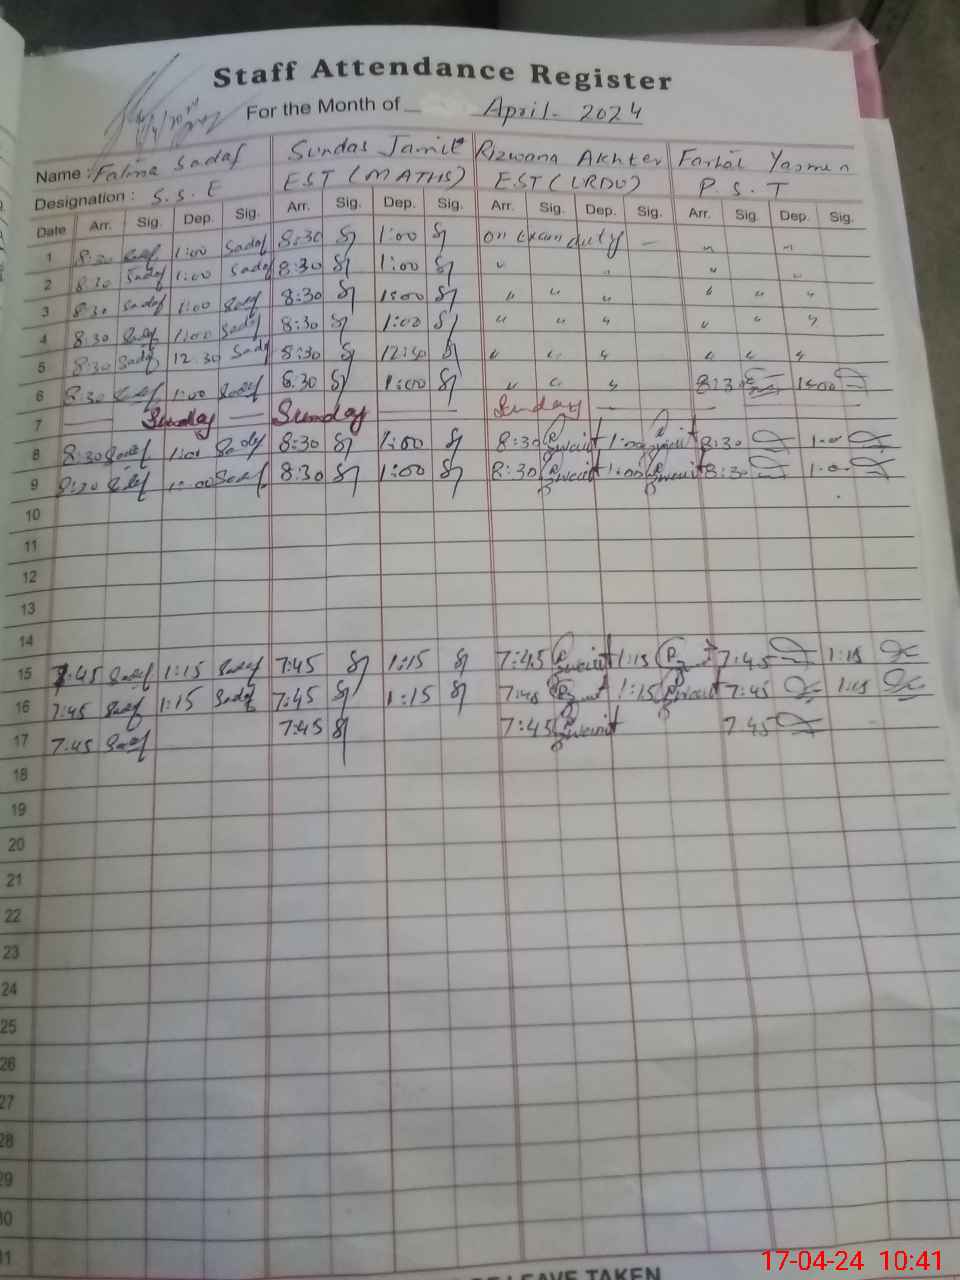 Staff Attendance Register
For the Month of April - 2024
Name : Fatima Sadaf Sundas Jamil Rizwana Akhter Yasmen
Designation : S.S.E EST (MATHS) EST (URDU) P.S.T
Date Arr. Sig. Dep. Sig. Arr. Sig. Dep. Sig. Arr. Sig. Dep. Sig. Arr. Sig. Dep. Sig.
1 8:30 Sadaf 1:00 Sadaf 8:30 SJ 1:00 SJ on Exam duty — " "
2 8:30 Sadaf 1:00 Sadaf 8:30 SJ 1:00 SJ " " " "
3 8:30 Sadaf 1:00 Sadaf 8:30 SJ 1:00 SJ " " " " " "
4 8:30 Sadaf 1:00 Sadaf 8:30 SJ 1:00 SJ " " " " " "
5 8:30 Sadaf 12:30 Sadaf 8:30 SJ 12:30 SJ " " " " " "
6 8:30 Sadaf 1:00 Sadaf 8:30 SJ 1:00 SJ " " " 8:30 1:00
7 — Sunday — Sunday — — Sunday — —
8 8:30 Sadaf 1:00 Sadaf 8:30 SJ 1:00 SJ 8:30 1:00 8:30 1:00
9 8:30 Sadaf 1:00 Sadaf 8:30 SJ 1:00 SJ 8:30 1:00 8:30 1:00
10
11
12
13
14
15 7:45 Sadaf 1:15 Sadaf 7:45 SJ 1:15 SJ 7:45 1:15 7:45 1:15
16 7:45 Sadaf 1:15 Sadaf 7:45 SJ 1:15 SJ 7:45 1:15 7:45 1:15
17 7:45 Sadaf 7:45 SJ 7:45 7:45
18
19
20
21
22
23
24
25
26
27
28
29
30
31
LEAVE TAKEN
17-04-24 10:41